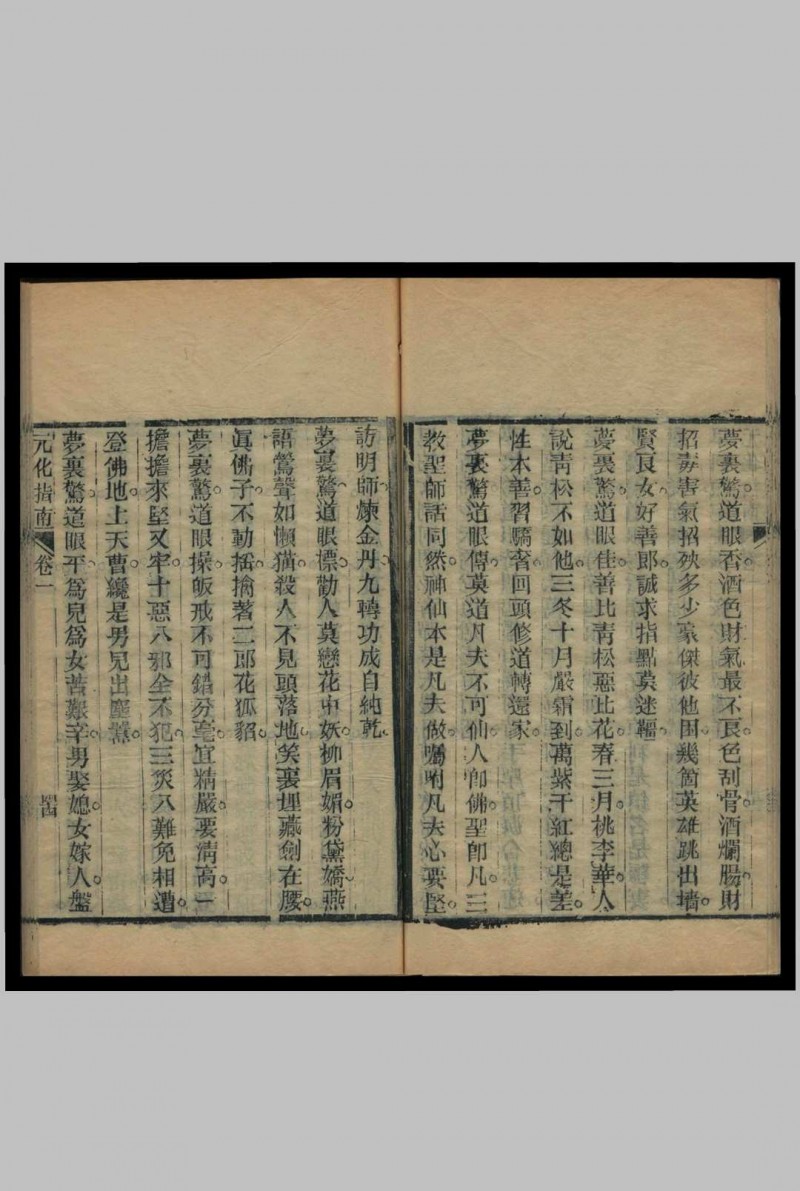 夢裏驚道眼香酒色財氣最不良色刮骨酒爛腸財
招毒害氣招殃多少豪傑彼他困幾箇英雄跳出墻
賢良女好善郎誠求指點莫迷韁
夢裏驚道眼佳善比靑松惡比花春三月桃李華人
說靑松不如他三冬十月嚴霜到萬紫千紅總是差
性本善習驕奢回頭修道轉還家
夢裏驚道眼傳莫道凡夫不可仙人卽佛聖卽凡三
敎聖師話同然神仙本是凡夫做囑咐凡夫心要堅
訪明師煉金丹九轉功成自純乾
夢裏驚道眼標勸人莫戀花中妖柳眉媚粉黛嬌燕
語鶯聲如懶猫殺人不見頭落地笑裏埋藏劍在腰
眞佛子不動搖擒著二郎花狐貂
夢裏驚道眼操皈戒不可錯分毫宜精嚴要淸高一
擔擔來堅又牢十惡八邪全不犯三災八難免相遭
登佛地上天曹纔是男兒出塵囂
夢裏驚道眼平爲兒爲女苦艱辛男娶媳女嫁人盤
元化指南 卷一